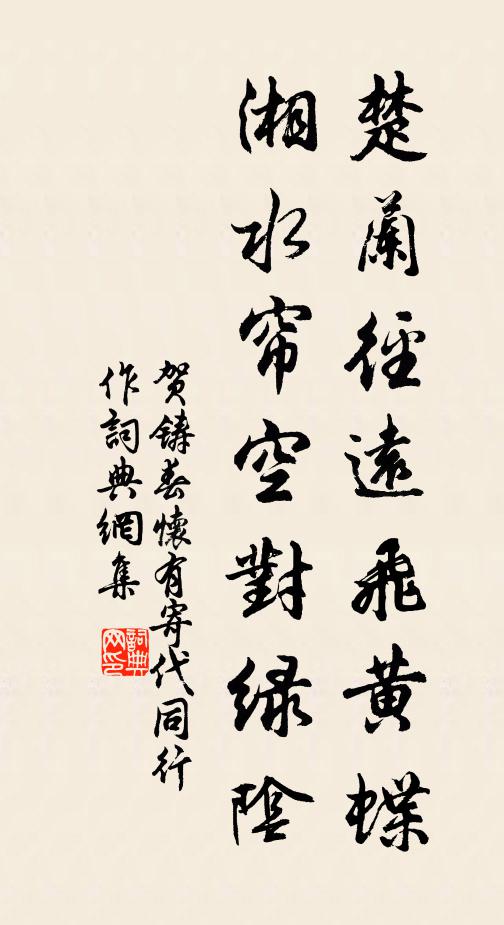 楚蘭徑遠飛黄蝶
湘水帘空對緑陰
贺鑄春懷有寄代同行
作詞典網集
詞典網印